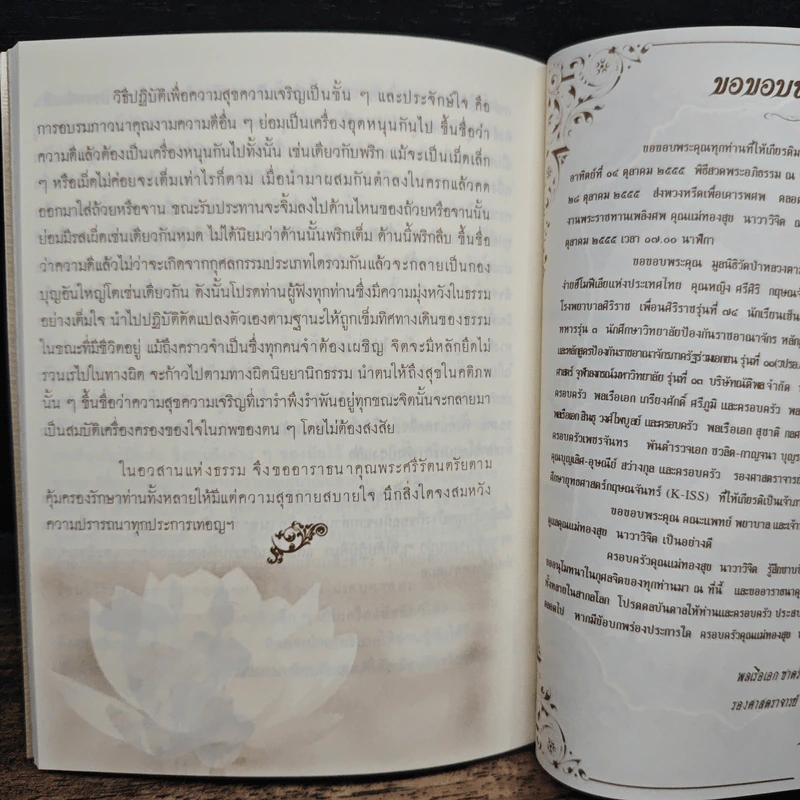 วิธีปฏิบัติเพื่อความสุขความเจริญเป็นขั้น ๆ และประจักษ์ใจ คือ
การอบรมภาวนาคุณงามความดีอื่น ๆ ย่อมเป็นเครื่องอุดหนุนกันไป ขึ้นชื่อว่า
ความดีแล้วต้องเป็นเครื่องหนุนกันไปทั้งนั้น เช่นเดียวกับพริก แม้จะเป็นเม็ดเล็ก
ๆ หรือเม็ดไม่ค่อยจะเต็มเท่าไรก็ตาม เมื่อนำมาผสมกันตำลงในครกแล้วคด
ออกมาใส่ถ้วยหรือจาน ขณะรับประทานจะจิ้มลงไปด้านไหนของถ้วยหรือจานนั้น
ย่อมมีรสเผ็ดเช่นเดียวกันหมด ไม่ได้นิยมว่าด้านนั้นพริกเต็ม ด้านนี้พริกลีบ ขึ้นชื่อ
ว่าความดีแล้วไม่ว่าจะเกิดจากกุศลกรรมประเภทใดรวมกันแล้วจะกลายเป็นกอง
บุญอันใหญ่โตเช่นเดียวกัน ดังนั้นโปรดท่านผู้ฟังทุกท่านซึ่งมีความมุ่งหวังในธรรม
อย่างเต็มใจ นำไปปฏิบัติดัดแปลงตัวเองตามฐานะให้ถูกเข็มทิศทางเดินของธรรม
ในขณะที่มีชีวิตอยู่ แม้ถึงคราวจำเป็นซึ่งทุกคนจำต้องเผชิญ จิตจะมีหลักยึดไม่
รวนเรไปในทางผิด จะก้าวไปตามทางนิยยานิกธรรม นำตนให้ถึงสุขในคติภพ
นั้น ๆ ขึ้นชื่อว่าความสุขความเจริญที่เรารำพึงรำพันอยู่ทุกขณะจิตนั้นจะกลายมา
เป็นสมบัติเครื่องครองของใจในภพของตน ๆ โดยไม่ต้องสงสัย
ในอวสานแห่งธรรม จึงขออาราธนาคุณพระศรีรัตนตรัยตาม
คุ้มครองรักษาท่านทั้งหลายให้มีแต่ความสุขกายสบายใจ นึกสิ่งใดจงสมหวัง
ความปรารถนาทุกประการเทอญฯ
ขอขอบ
ขอขอบพระคุณทุกท่านที่ให้เกียรติ
อาทิตย์ที่ ๑๔ ตุลาคม ๒๕๕๕ พิธีสวดพระอภิธรรม ณ
๒๘ ตุลาคม ๒๕๕๕ ส่งพวงหรีดเพื่อเคารพศพ ตลอด
งานพระราชทานเพลิงศพ คุณแม่ทองสุข นาวาวิจิต
ตุลาคม ๒๕๕๕ เวลา ๑๗.๐๐ นาฬิกา
ขอขอบพระคุณ มูลนิธิวัดป่าหลวงตา
ง่ายฮีโมฟีเลียแห่งประเทศไทย คุณหญิง ศรีศิริ กฤษณ
โรงพยาบาลศิริราช เพื่อนศิริราชรุ่นที่ ๗๔ นักเรียน
ทหารรุ่น ๓ นักศึกษาวิทยาลัยป้องกันราชอาณาจักร
และหลักสูตรป้องกันราชอาณาจักรภาครัฐร่วมเอกชน รุ่นที่
ศาสตร์ จุฬาลงกรณ์มหาวิทยาลัย รุ่นที่ บริษัท จำกัด
ครอบครัว พลเรือเอก เกรียงศักดิ์ ศรีภูมิ และครอบครัว
พลเรือเอก สินธุ วงศ์ไพบูลย์ และครอบครัว พลเรือเอก สุชาติ
ครอบครัวเพชรจันทร พันตำรวจเอก ชวลิต-กาญจนา
คุณบุญเลิศ-อุษณีย์ สว่างกุล และครอบครัว รองศาสตราจารย์
ศึกษายุทธศาสตร์กฤษณจันทร์ (K-ISS) ที่ให้เกียรติเป็นเจ้าภาพ
ขอขอบพระคุณ คณะแพทย์ พยาบาล และ
ดูแลคุณแม่ทองสุข นาวาวิจิต เป็นอย่างดี
ครอบครัวคุณแม่ทองสุข นาวาวิจิต รู้สึก
ขออนุโมทนาในกุศลจิตของทุกท่านมา ณ ที่นี้ และขออาราธนา
ทั้งหลายในสากลโลก โปรดดลบันดาลให้ท่านและครอบครัว
ตลอดไป หากมีข้อบกพร่องประการใด ครอบครัวคุณแม่ทองสุข
พลเรือเอก
รองศาสตราจารย์